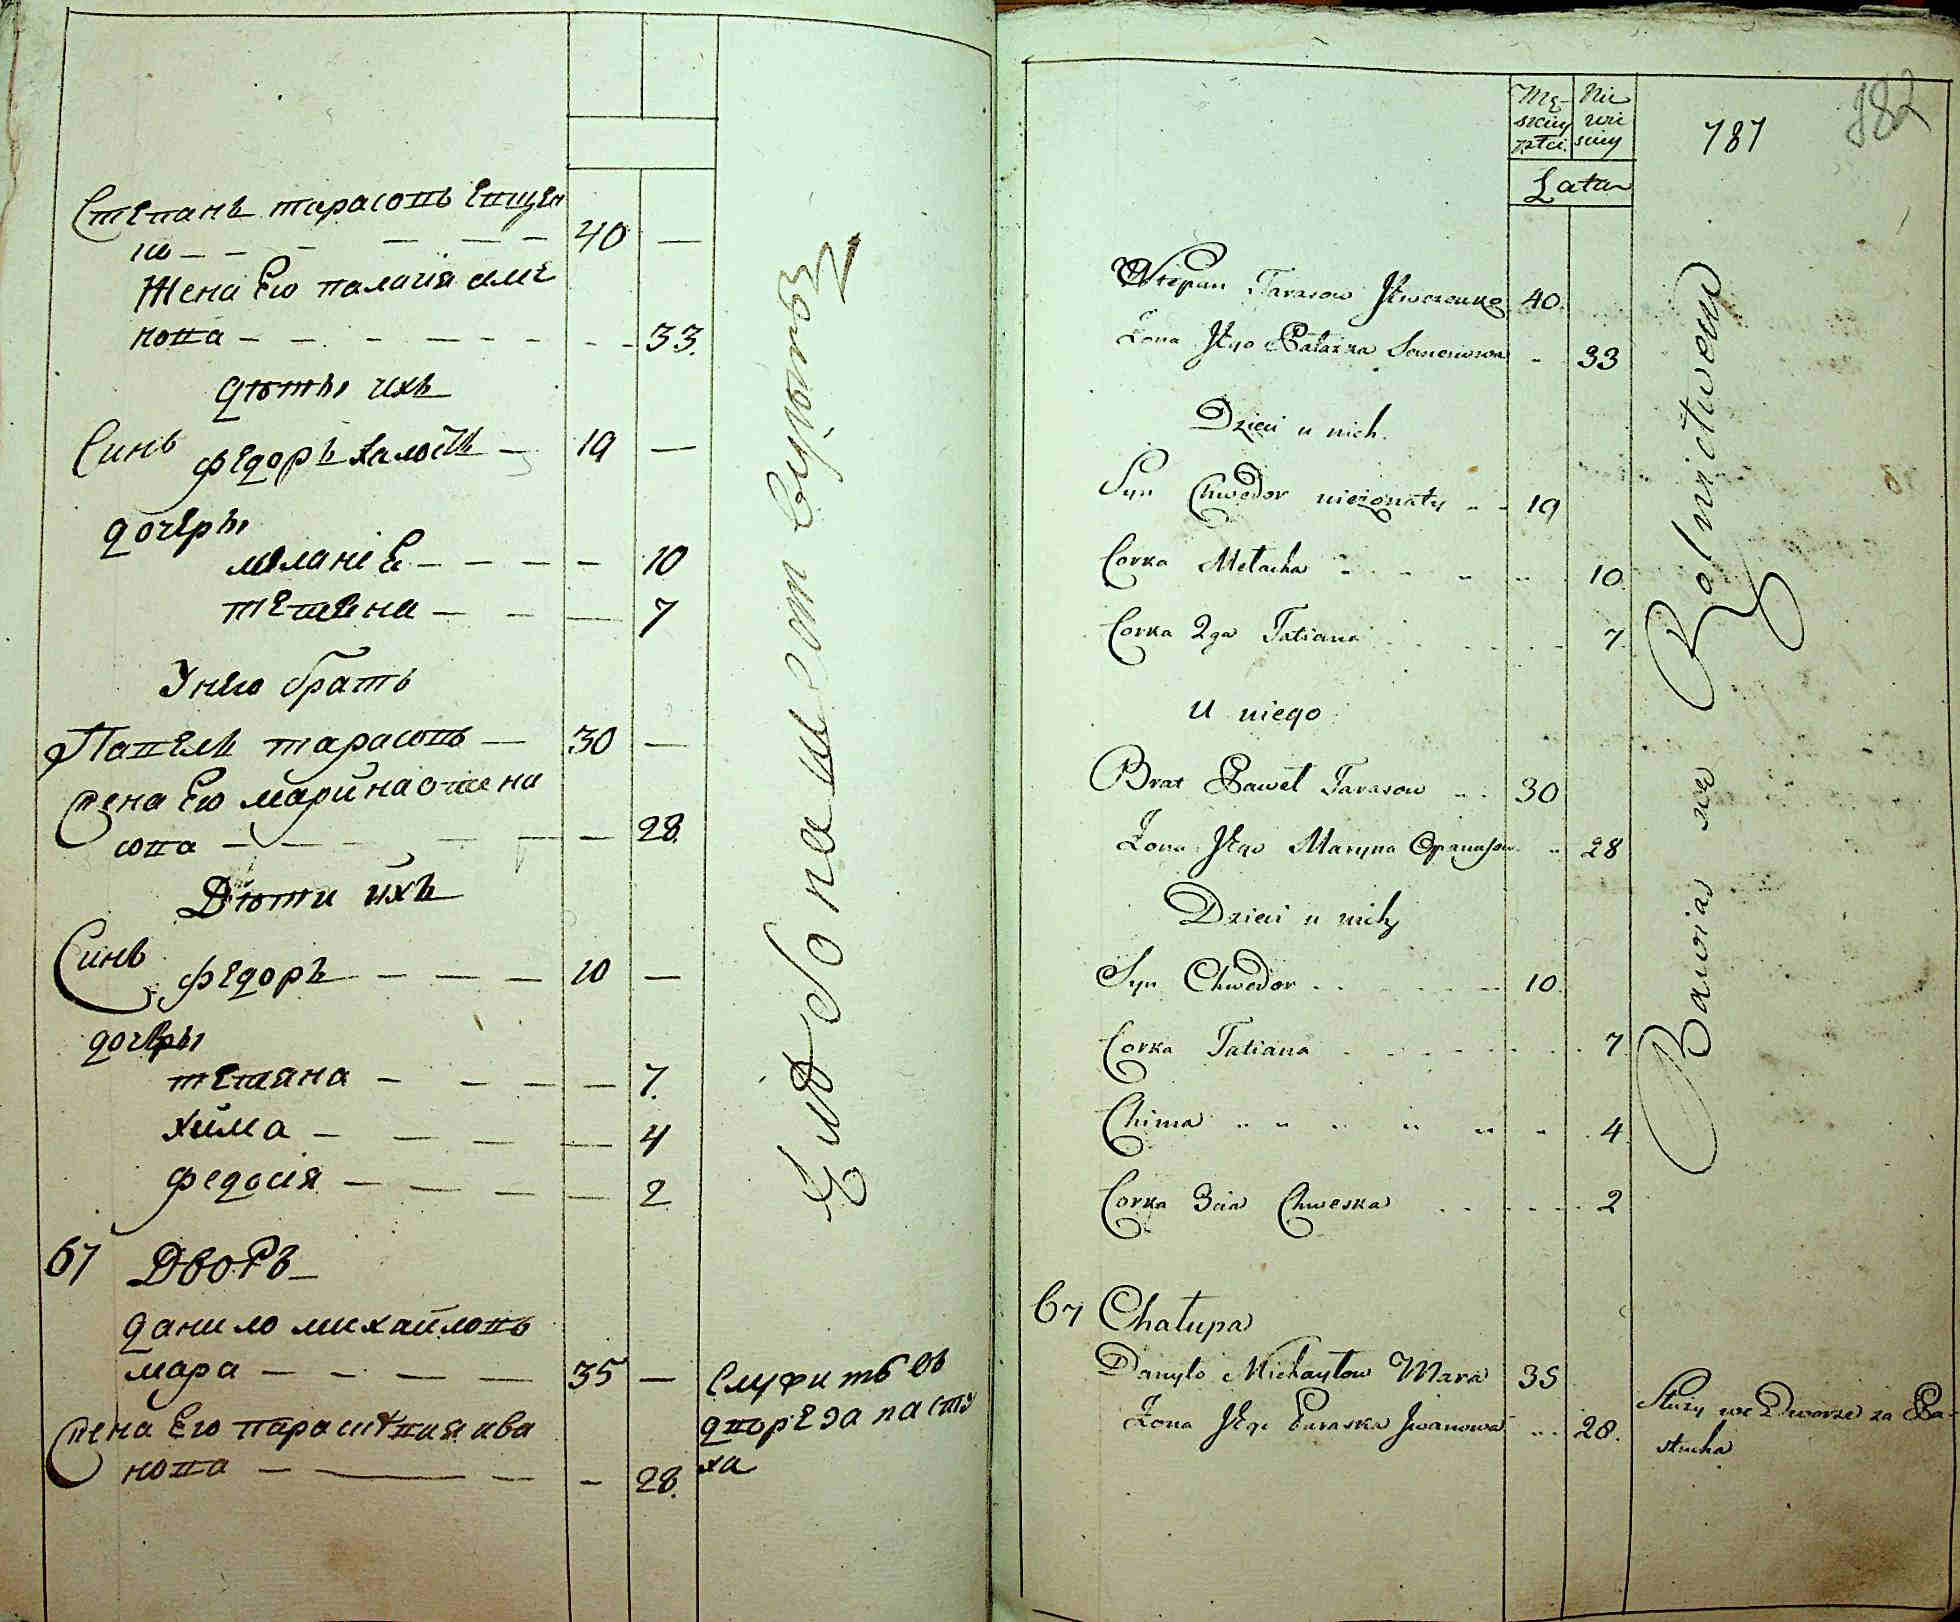 Степанъ тарасовъ Евщен
ко 40
Жена Его палагія семе
нова 33.
дѣты ихъ
Синъ федоръ халостъ 19
дочеры
меланіе 10
тетяна 7
У него братъ
Павелъ тарасовъ 30
жена Его марина опана
сова 28.
Дѣти ихъ
Синъ федоръ 10
дочеры
тетяна 7.
хима 4
федосія 2
67 Дворъ
данило михайловъ
мара 35
жена Его парасцевия ива
нова 28.
служитъ въ
дворе за пасту
ха
Męzkiey płci
Nie wie sciey
Lata
787
382
Stepan Tarasow 40.
Zona Jego Pałazka Semenowa 33
Dzieci u nich.
Syn Chwedor nieżonaty 19
Corka Melacha 10
Corka 2ga Tatiana 7.
U niego
Brat Paweł Tarasow 30
Zona Jego Maryna Opanasow 28
Dzieci u nich
Syn Chwedor 10.
Corka Tatiana 7.
Chima 4.
Corka 3cia Chweska 2
Bawia sie Rolnictwem
67 Chałupa
Danyło Michayłow Mara 35
Zona Jego Paraska Jwanowa 28.
Służy we Dworze za Pa-
stucha